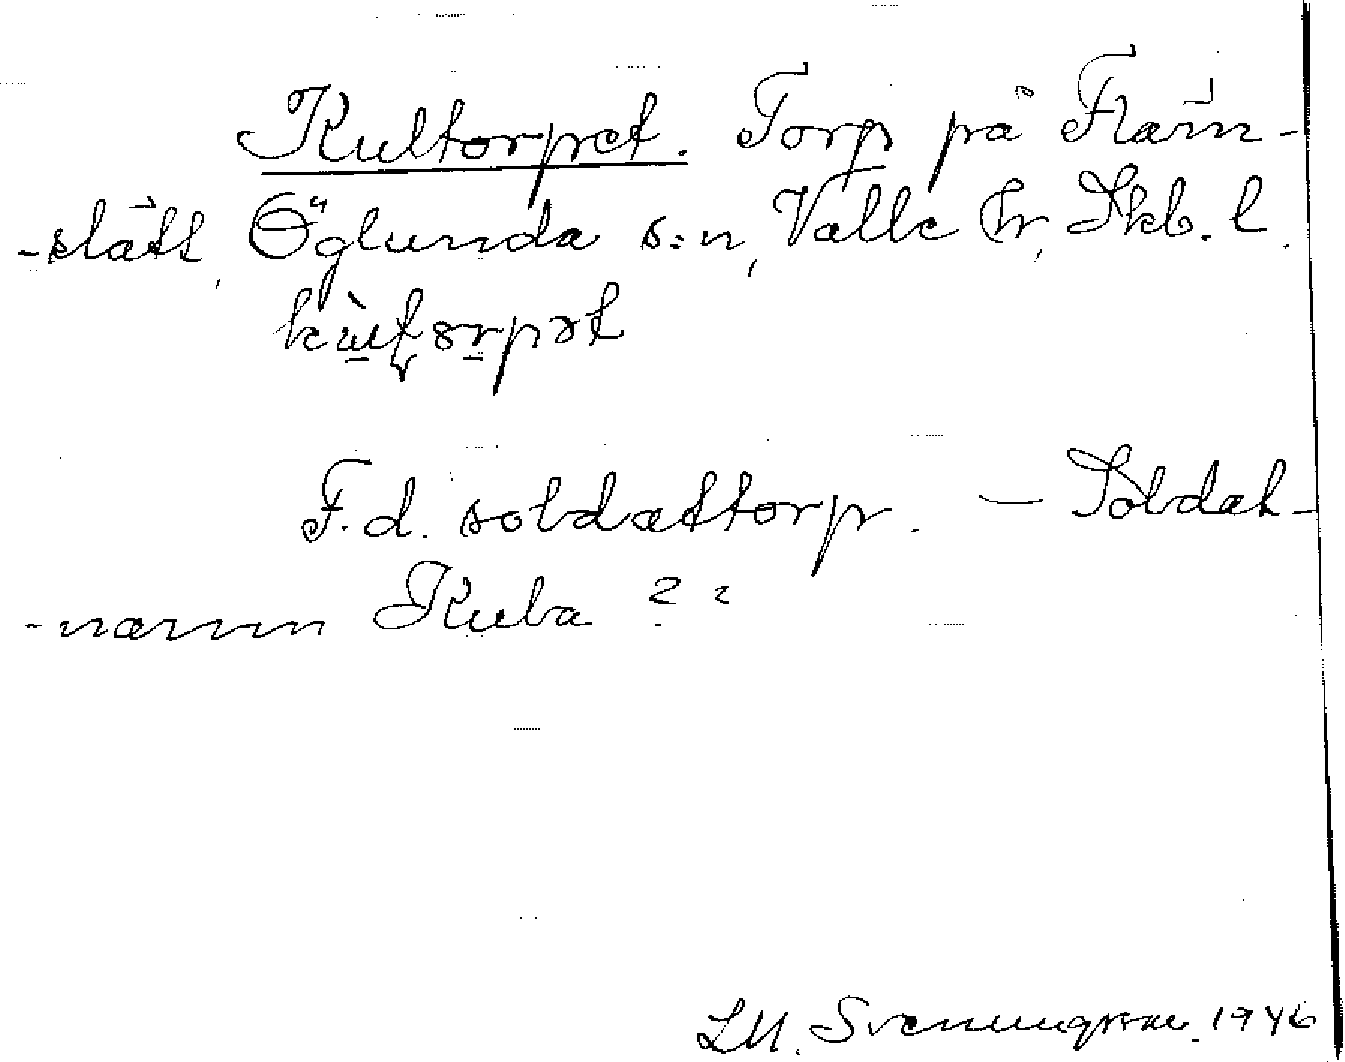 Kultorpet. Torp på Fläm-
-slätt, Öglunda s:n, Valle hr, Skb. l.
kùlt̬orpət
F.d. soldattorp. — Soldat-
-namn Kula ? ?
LM. Svenungsson. 1946